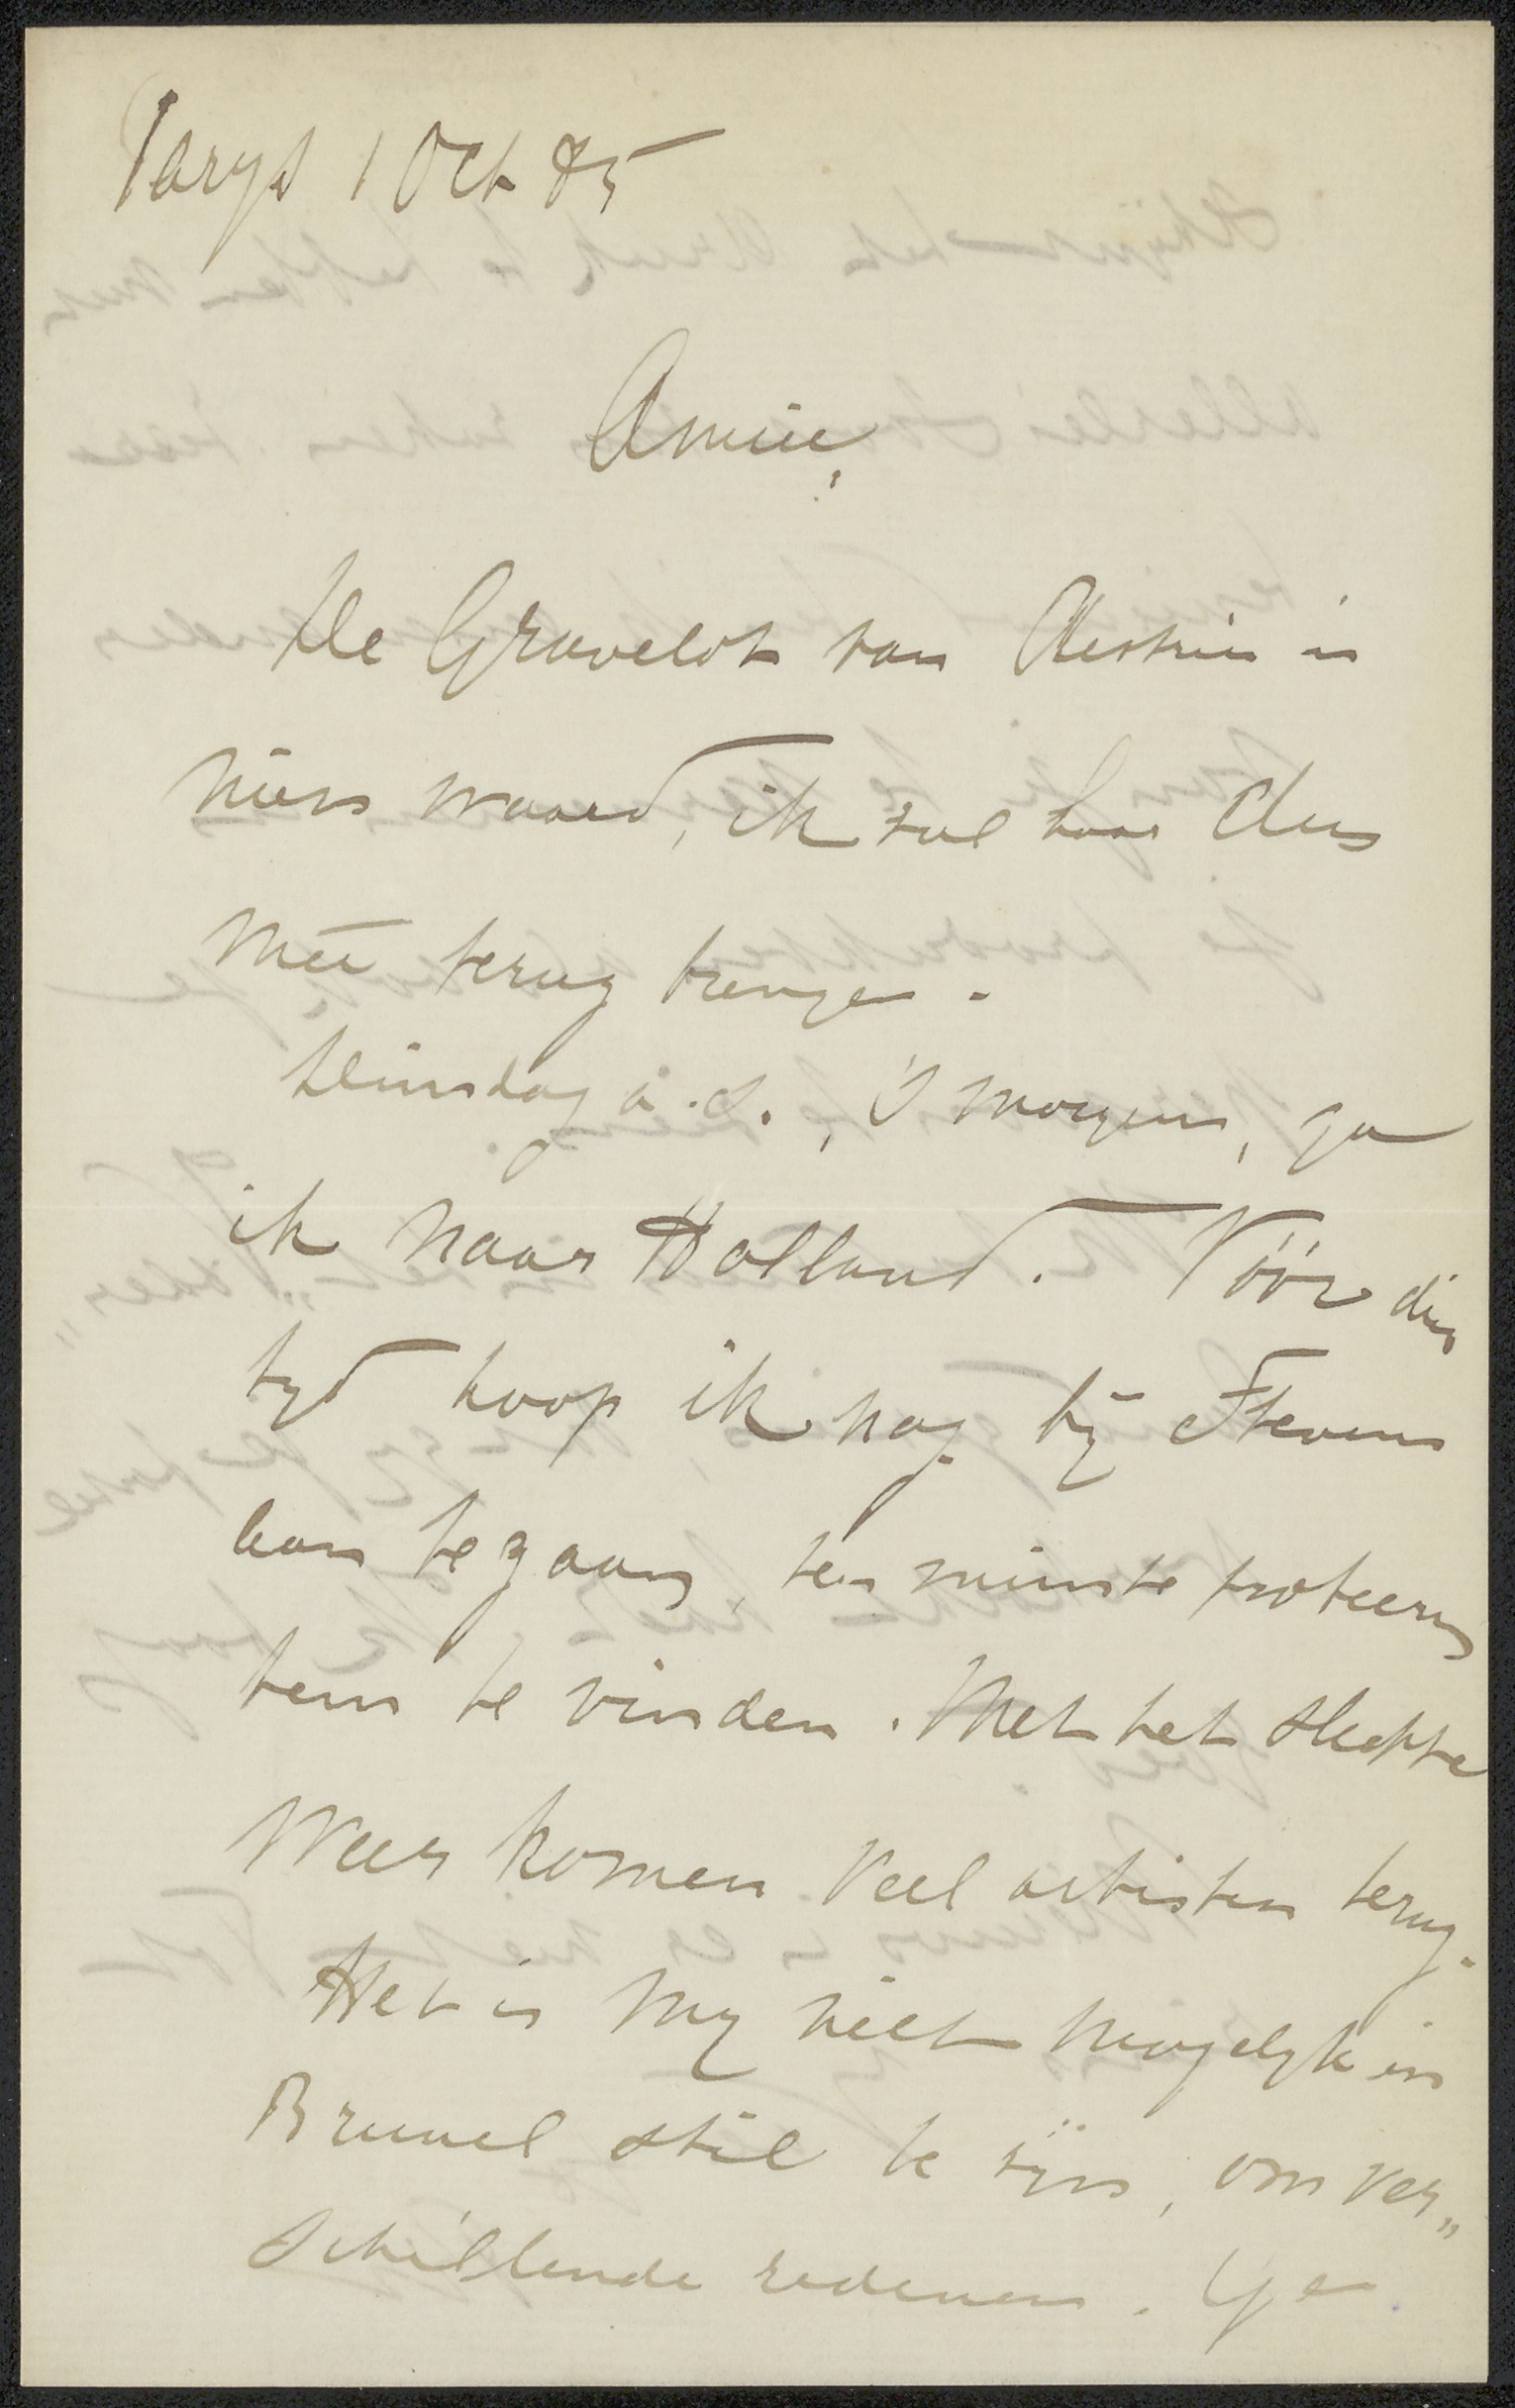 Parys 1 Oct 85
Amice,
De Gravelot van Destrée is
niets waard, ik zal haar dus
meê terug brengen.
Dinsdag a.s., 's morgens, ga
ik naar Holland. Vóór dien
tyd hoop ik nog by Stevens
aan te gaan, ten minste probeeren
hem te vinden. Met het slechte
weer komen veel artisten terug.
Het is my niet mogelyk in
Brussel stil te zyn, om ver„
schillende redenen. Ge